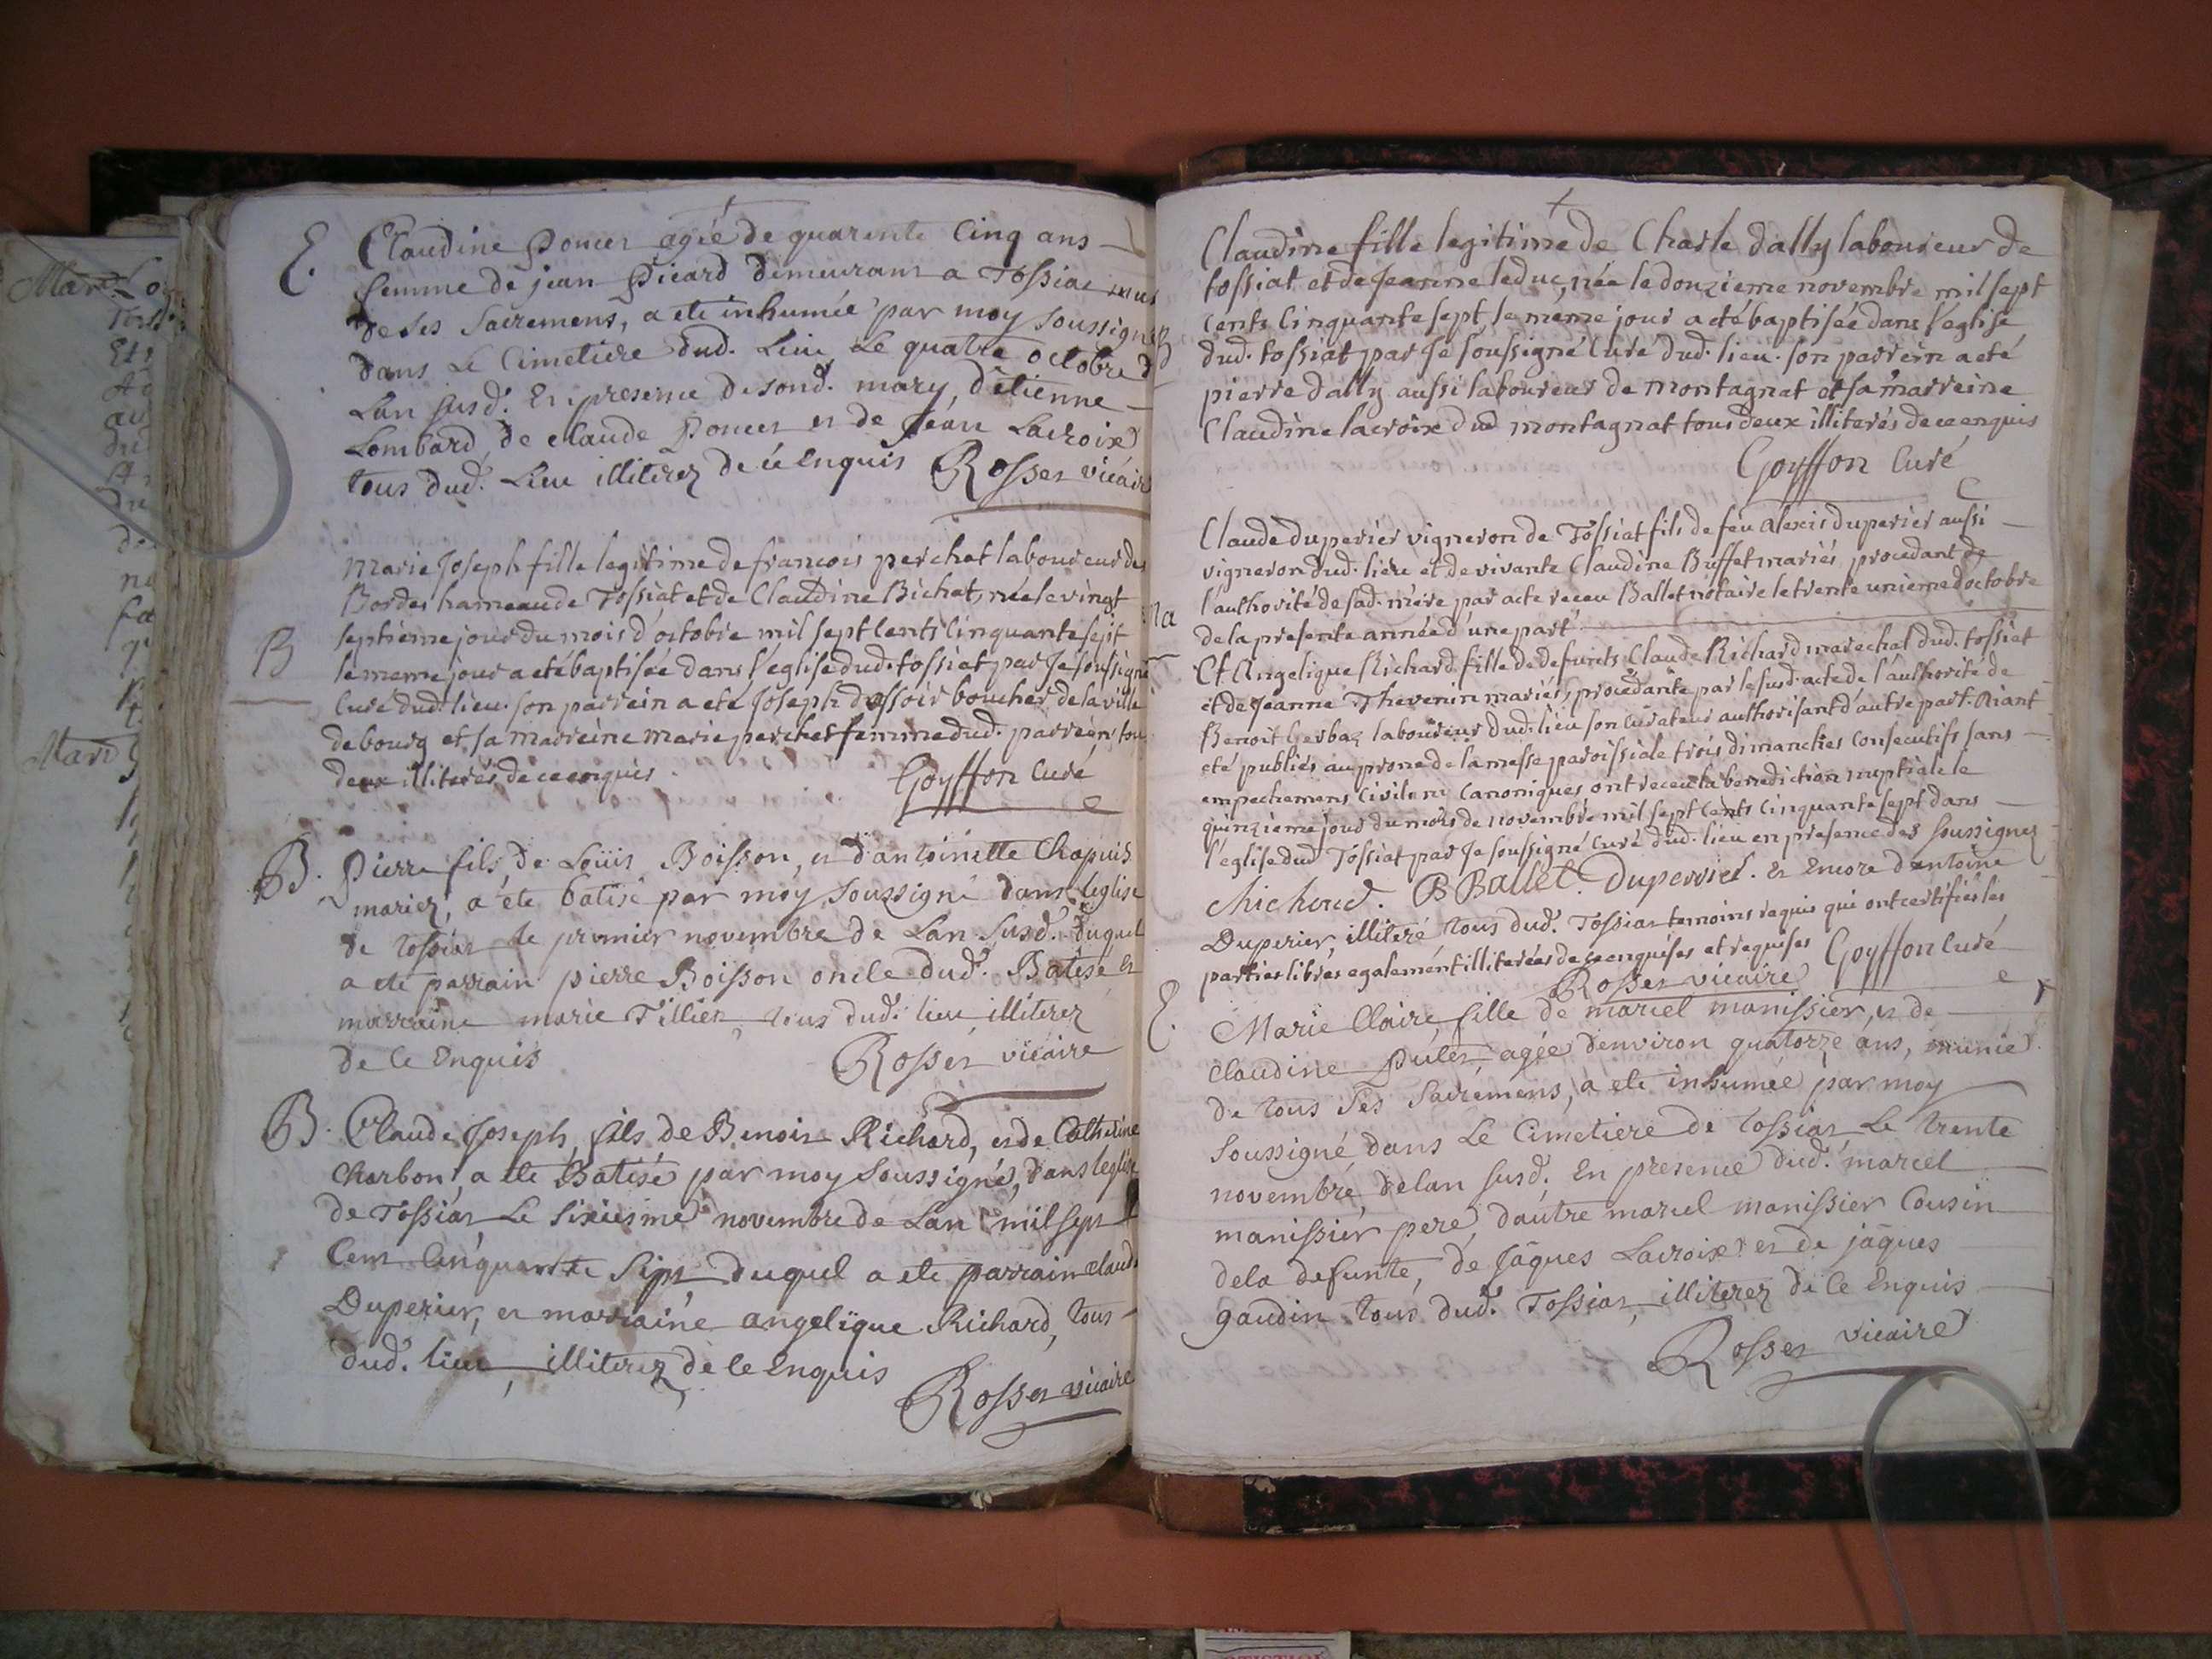 E. Claudine Poncet agée de quarente Cinq ans
femme de jean Picard demeurant a Tossiat munie
de ses Sacremens, a eté inhumée par moy soussigné
dans Le Cimetiere dud. Lieu Le quatre octobre de
Lan susd. Et presence de sond. mary, d'étienne
Lombard, de claude Poncet et de Jean Lacroix
tous dud. Lieu illiterez de ce Enquis Rosset vicaire
Marie Joseph fille legitime de francois perchat laboureur des
Bordes hameau de Tossiat et de Claudine Bichat, née le vingt
septieme jour du mois d'octobre mil sept cents cinquante sept
B le meme jour a eté baptisée dans l'eglise dud. tossiat par Je soussigné
curé dud. lieu. son parrein a eté Joseph dossoir boucher de la ville
de bourg et sa marreine marie perchet femme dud. parrein, tou
deux illiterés de ce enquis. Goyffon curé
B. Pierre fils, de Loüis Boisson, et d'antoinette Chapuis
mariez, a été batisé par moy soussigné dans leglise
de tossiat le premier novembre de Lan susd. duquel
a eté parrain pierre Boisson oncle dud. Batisé et
marraine marie Tillier, tous dud. lieu illiterez
de ce Enquis Rosset vicaire
B. Claude Joseph, fils de Benoit Richard, et de Catherine
Charbon, a eté Batisé par moy soussignés, dans leglise
de Tossiat Le sixiesme novembre de Lan mil sept
Cent Cinquante Sept duquel a eté parrain claude
Duperier, et marraine angelique Richard, tous
dud. lieu, illiterez de ce Enquis
Rosset vicaire
Claudine fille legitime de Charle dally laboureur de
tossiat et de Jeanne leduc, née le douzieme novembre mil sept
cents cinquante sept, le meme jour a eté baptisée dans l'eglise
dud. tossiat par Je soussigné curé dud. lieu. son parrein a eté
pierre dally aussi laboureur de montagnat et sa marreine
Claudine lacroix dud montagnat tous deux illiterés de ce enquis
Goyffon Curé
Claude duperier vigneron de Tossiat fils de feu alexis duperier aussi
vigneron dud. lieu et de vivante Claudine Buffet mariés, procedant de
l'authorité de sad. mere par acte receu Ballet notaire le trente unieme d'octobre
Ma de la presente année d'une part.
Et Angelique Richard fille de defunts Claude Richard marechal dud. tossiat
et de Jeanne Thevenin mariés, procedante par le susd. acte de l'authorité de
Benoit Gerbaz laboureur dud. lieu son curateur authorisant d'autre part. Aiant
eté publiés au prone de la messe paroissiale trois dimanches consecutifs sans
empechemens civils ni canoniques ont receu la benediction nuptiale le
quinzieme jour du mois de novembre mil sept cents cinquante sept dans
l'eglise dud Tossiat par Je soussigné curé dud. lieu en presence des soussignez
chichoud. B Ballet. Duperrier. Et Encore d'antoine
Duperier, illiteré tous dud. Tossiat temoins requis qui ont certifié les
parties libres egalement illiterées de ce enquises et requises Goyffon Curé
Rosset vicaire
E. Marie Claire, fille de marcel manissier, et de
claudine Pulet, agée denviron quatorze ans, munie
de tous ses Sacremens, a eté inhumée par moy
Soussigné dans Le Cimetiere de tossiat Le trente
novembre delan susd. En presence dud. marcel
manissier pere, dautre marcel manissier Cousin
dela defunte, de Jâques Lacroix et de jâques
gaudin tous dud. Tossiat, illiterez de Ce Enquis
Rosset vicaire